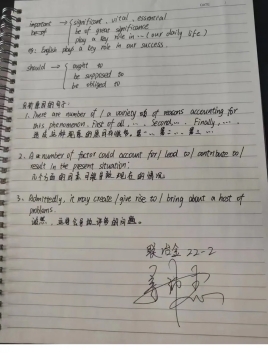 important → { significant, vital, essential
be of → { be of great significance
play a key role in ~ (our daily life)
eg: English plays a key role in our success.
should → { ought to
be supposed to
be obliged to
1. There are number of / a variety nb of reasons accounting for
this phenomenon. First of all, ... Second, ... Finally, ...
第一 ... 第二 ... 第三 ...
2. A number of factor could account for / lead to / contribute to /
result in the present situation.
几个方面的因素可能导致现在的情况
3. Admittedly, it may create / give rise to / bring about a host of
problems.
诚然, 会导致许多的问题。
冶金 22-2